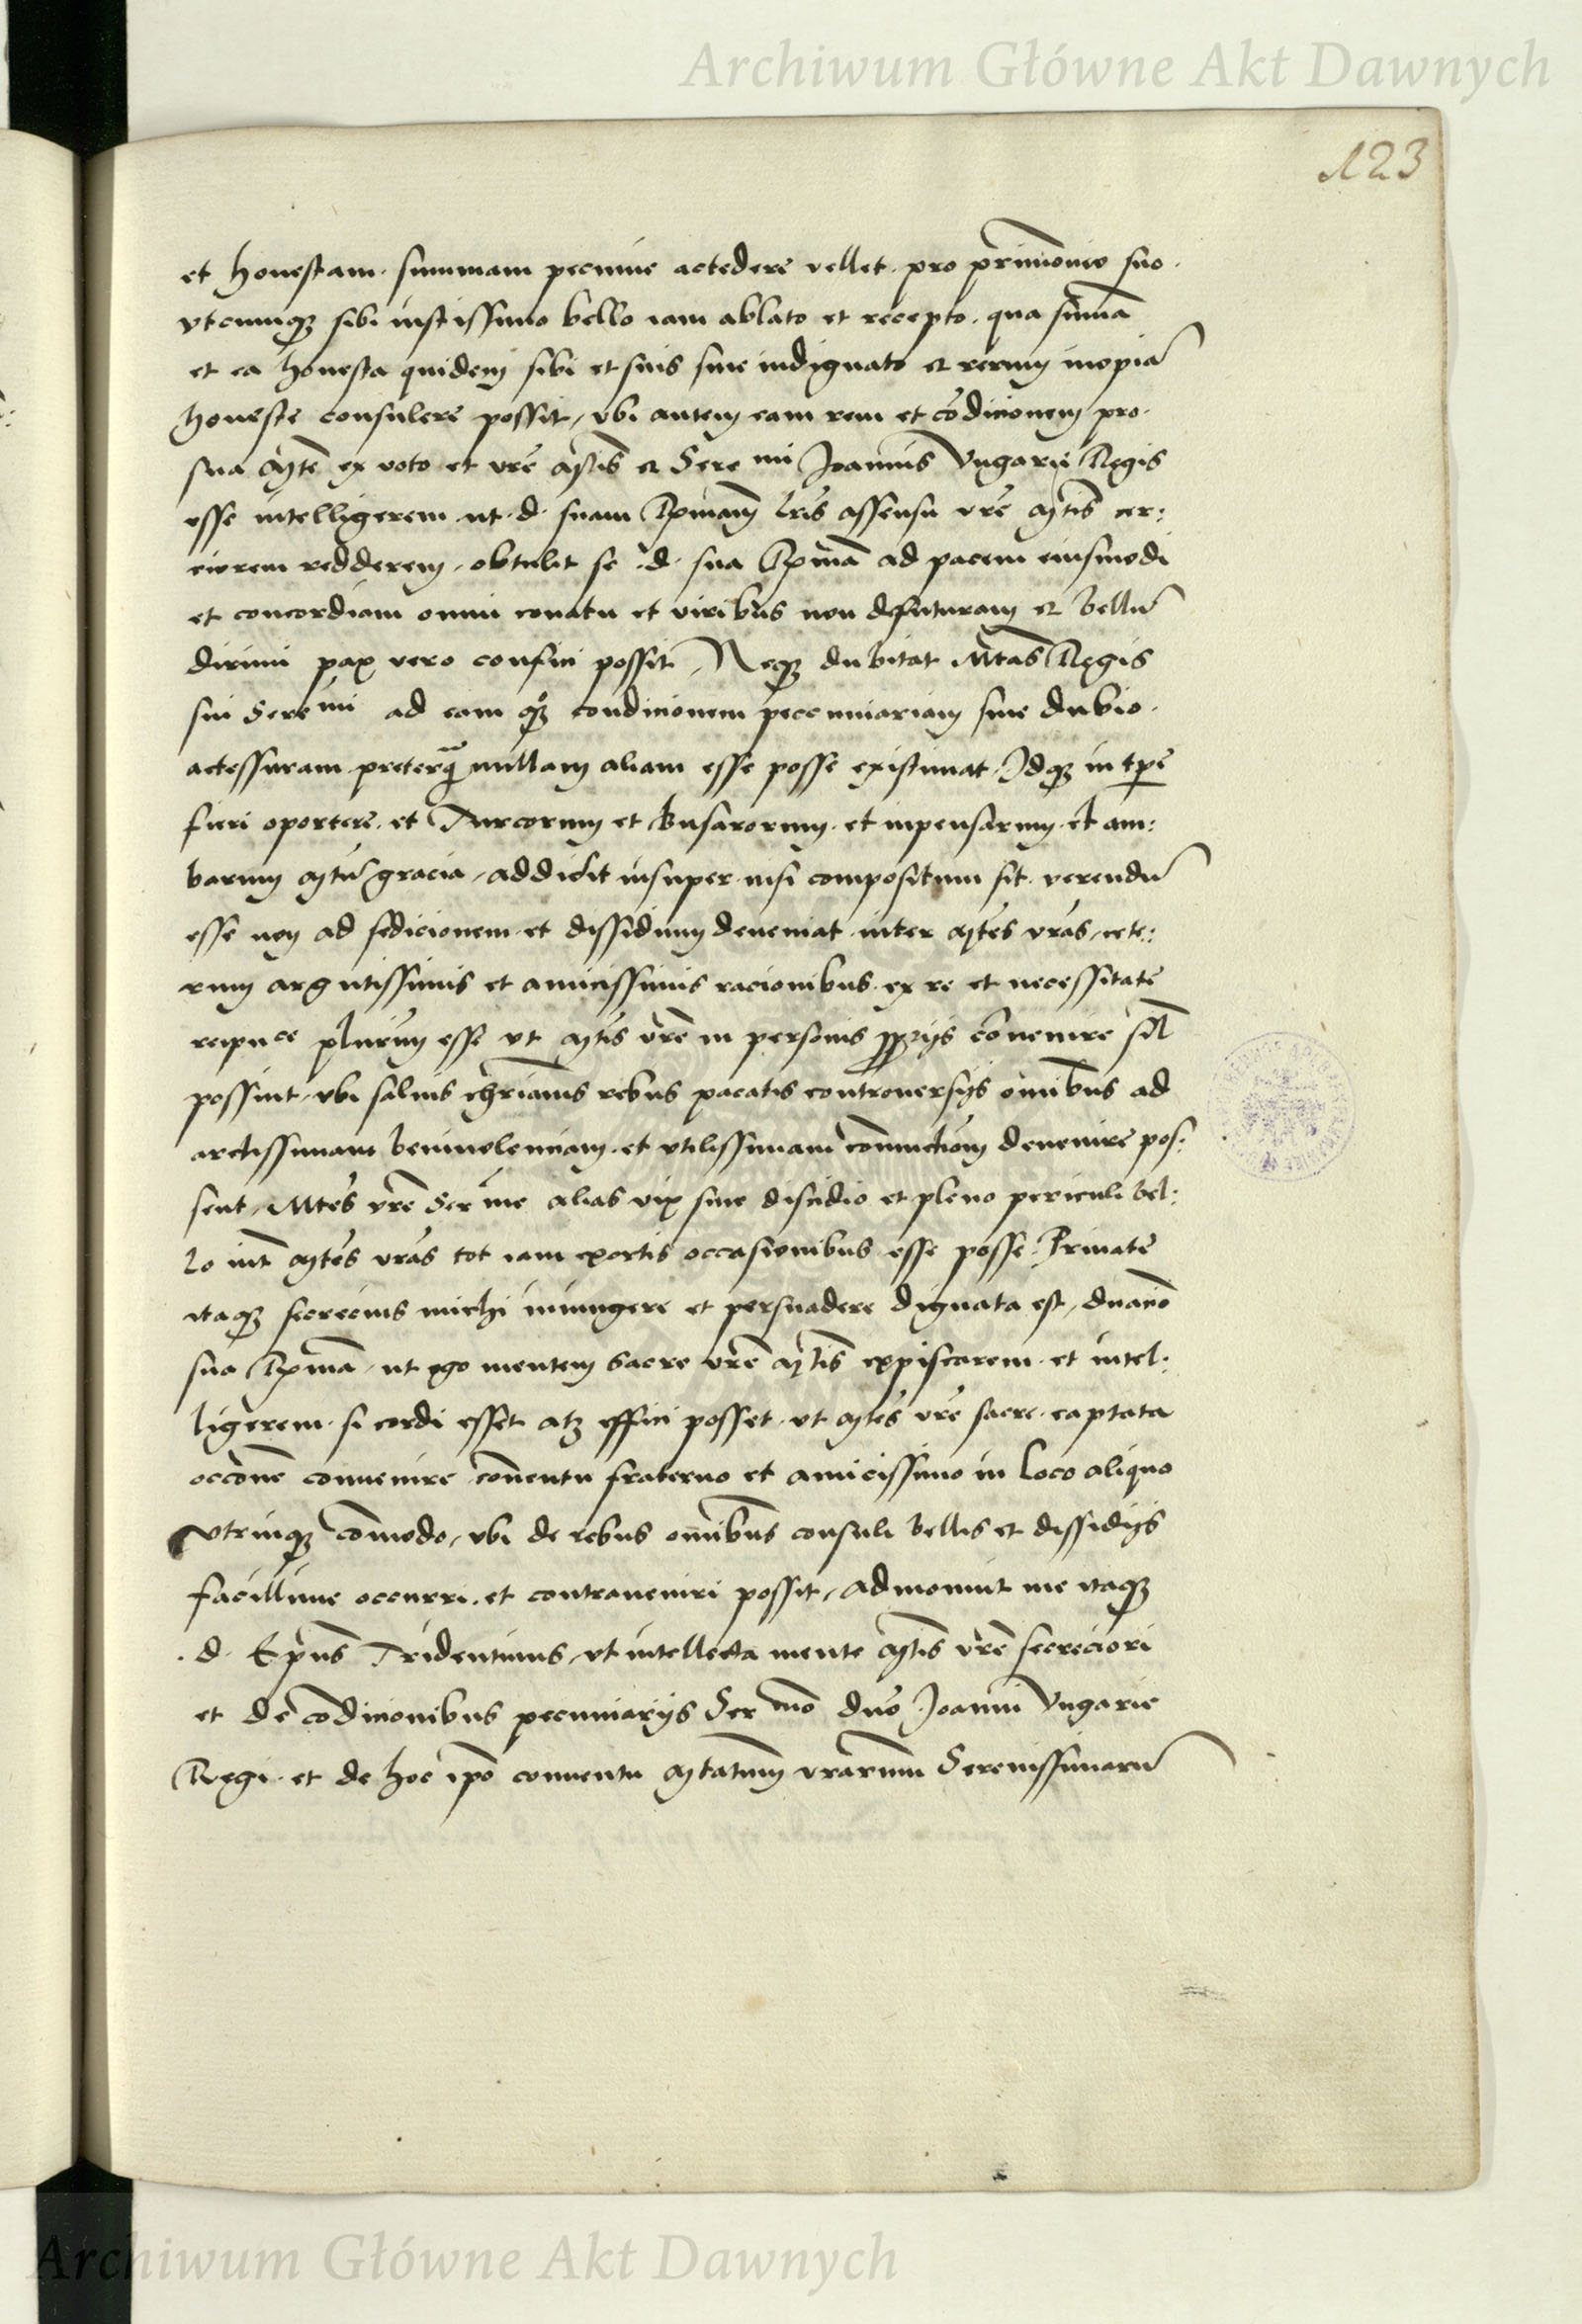 Archiwum Główne Akt Dawnych
123
et honestam summam pecunie accedere vellet pro prīmōnio suo
vtcumqȝ sibi iustissimo bello iam ablato et recepto, qua sūmā
et ea honesta quidem sibi et suis sine indignatō et rerum inopia
honeste consulere possit, vbi autem eam rem et cōdicionem pro
sua Mte ex voto et vre Mtis et Sere mi Joannis Vngarie Regis
esse intelligerem ut d. suam Rpmam lris assensu vre Mtis cer:
ciorem redderem, obtulit se d. sua Rpma ad pacem eiusmodi
et concordiam omni conatu et viribus non defuturam et bellū
dirimi pax vero confici possit, Neqȝ dubitat Mtas Regis
sui Sere mi ad eam qȝ condicionem pecuniariam sine dubio
accessuram preterqȝ nullam aliam esse posse existimat, Idqȝ in tpe
fieri oportere et Turcorum et Husarorum et inpensarum et am:
barum Mtū gracia, addidit insuper nisi compositum sit verendū
esse ney ad sedicionem et dissidium deueniat inter Mtes vras, cete:
rum argutissimis et amicissimis racionibus ex re et necessitate
reipuce plurimum esse vt Mtes vre in personis pprijs cōuenire sil
possint, vbi saluis chrianis rebus pacatis controuersijs omibus ad
arctissimam beniuolenciam et vtilissimam cōiunctiom deuenire pos:
sent, Mtes vre Ser me alias vix sine discidio et pleno periculi bel:
lo int Mtes vras tot iam exortis occasionibus esse posse. Priuate
itaqȝ secrecius michi iniungere et persuadere dignata est, dnacio
sua Rpma, ut ego mentem Sacre vre Mtis expiscarem et intel:
ligerem si cordi esset atȝ effici posset vt Mtes vre sacre captata
occōne conuenire cōuentu fraterno et amicissimo in loco aliquo
vtrinqȝ cōmodo, vbi de rebus omibus consuli bellis et dissidijs
facillime occurri et contraueniri possit, admonuit me itaqȝ
d. Epus Tridentinus, vt intellecta mente Mtis vre secreciori
et de cōdicionibus pecuniarijs Ser mo dno Joanni Vngarie
Regi et de hoc ipo conuentu Mtatum vrarum Serenissimarū
Archiwum Główne Akt Dawnych